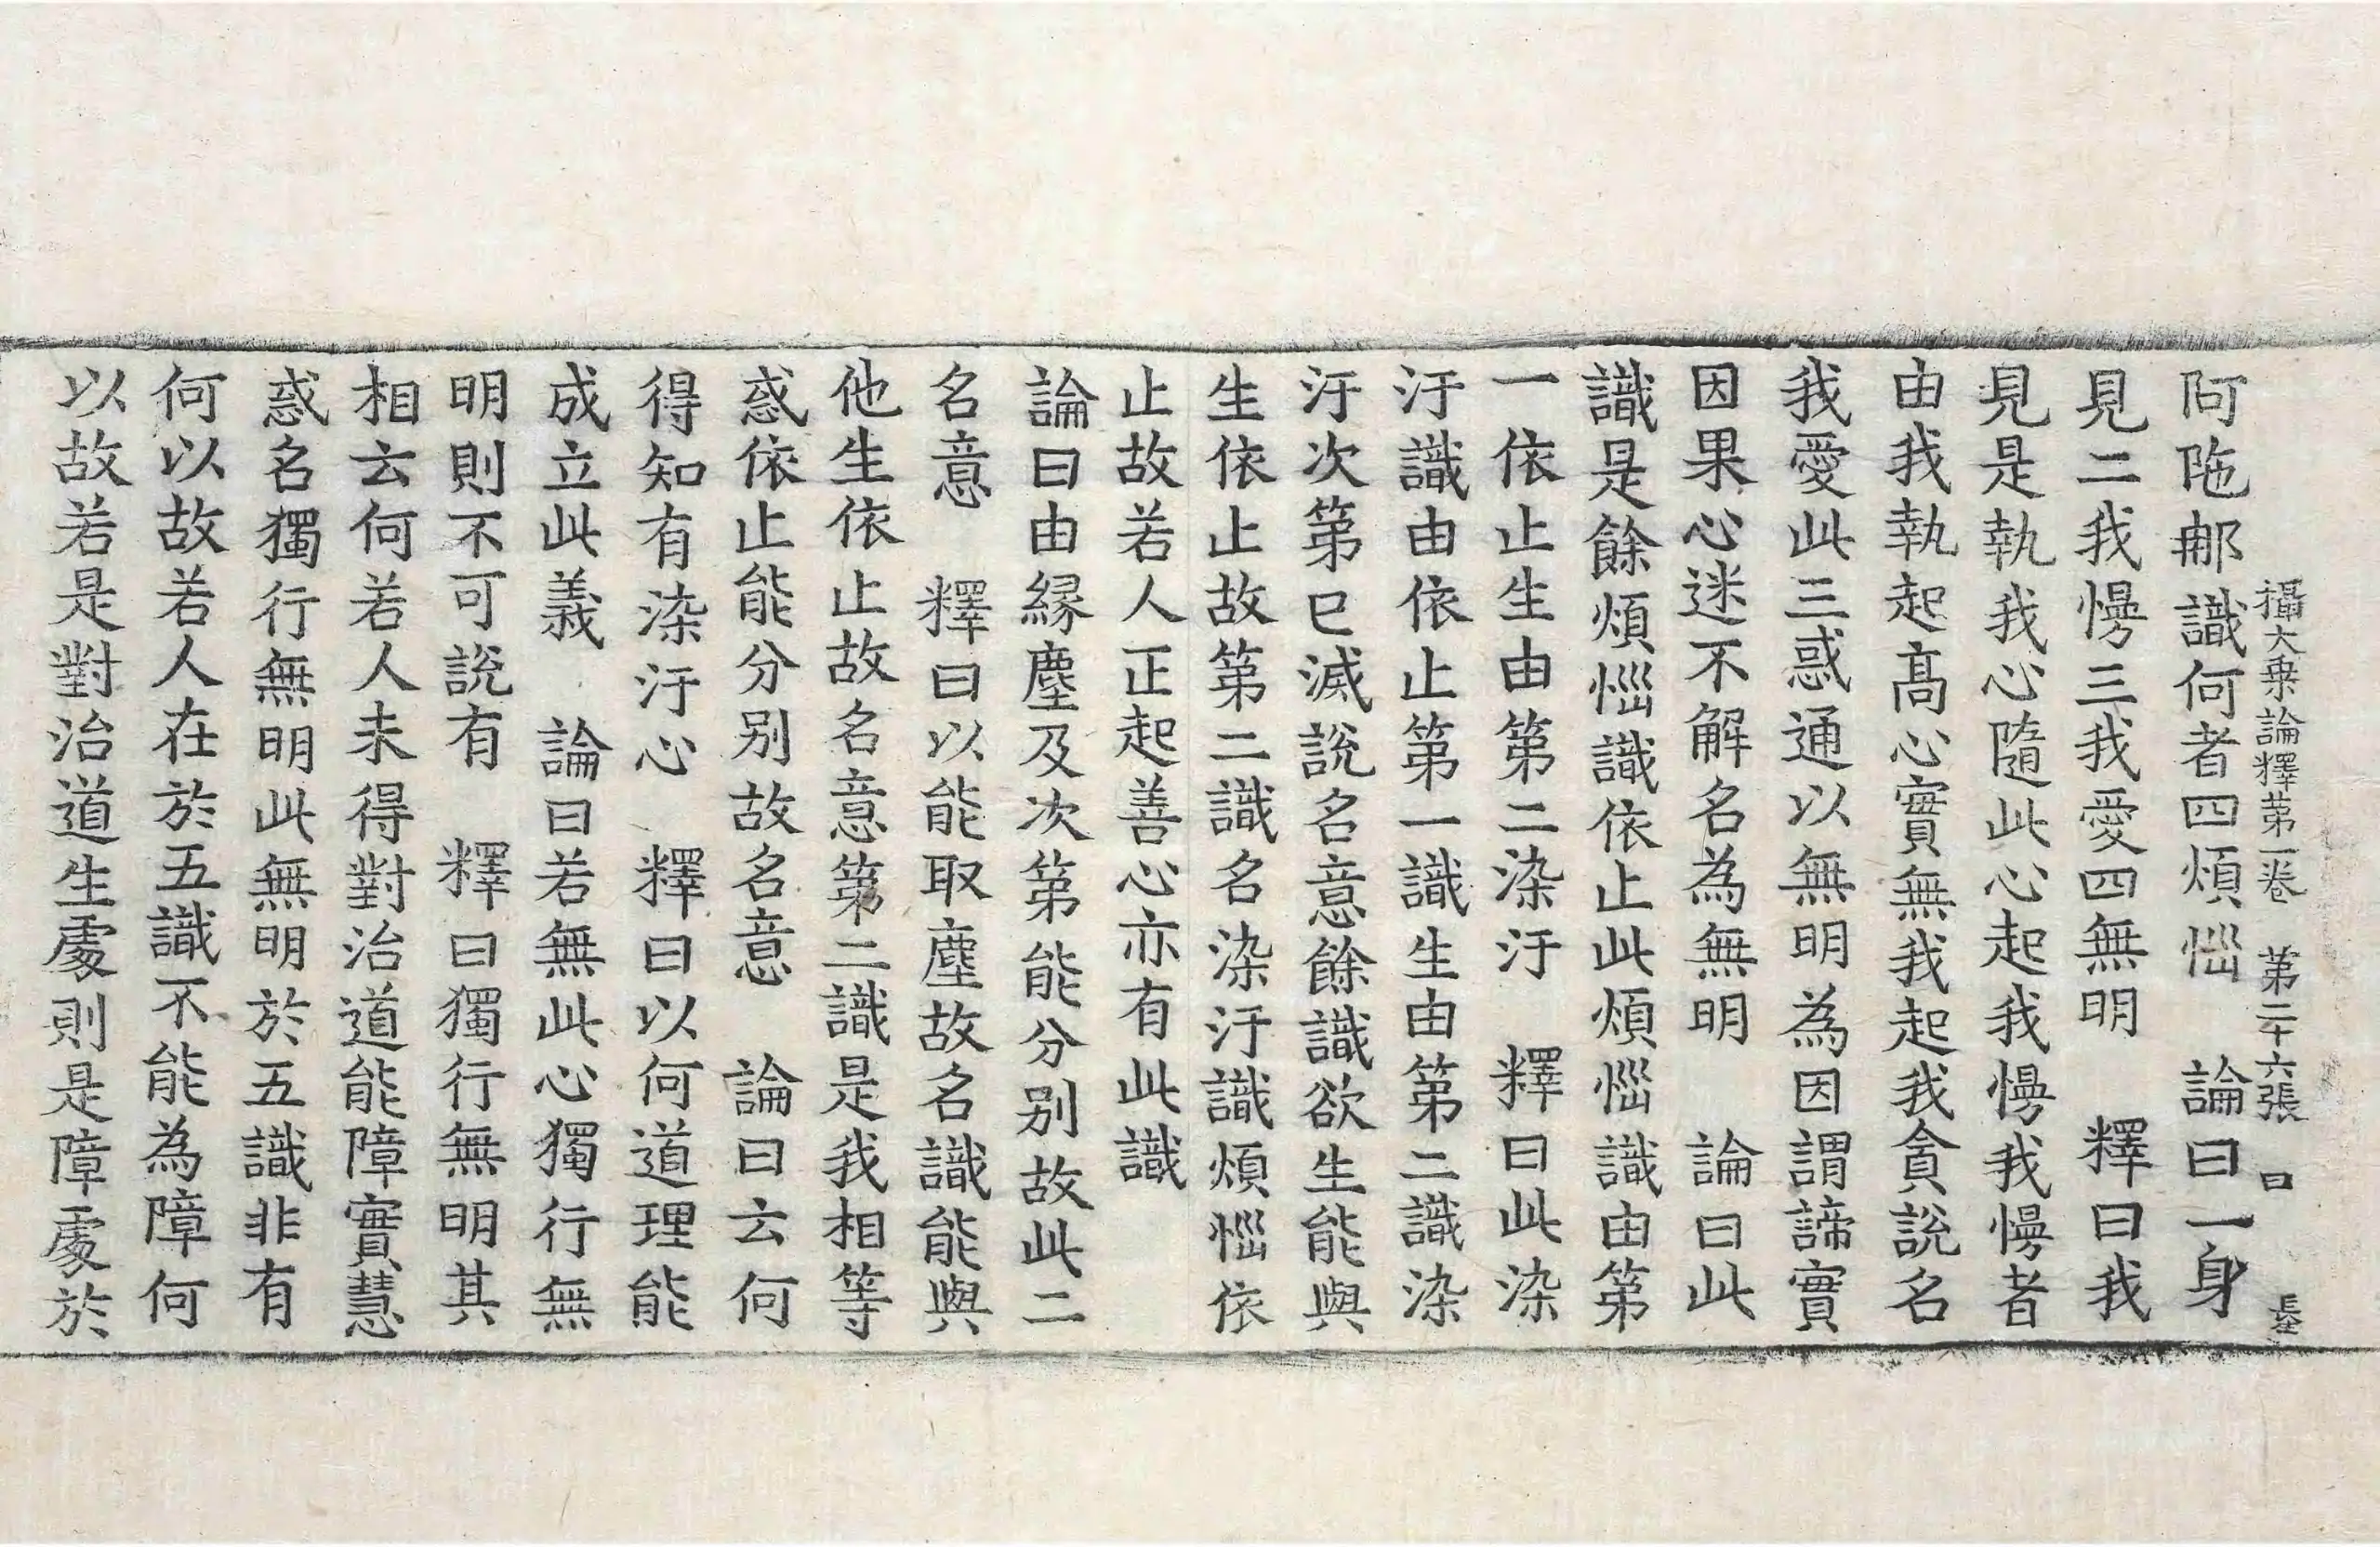 攝大乗論釋苐一卷　苐二十六張　曰
阿陁䣯識何者四煩惱　論曰一身
見二我慢三我愛四無明　釋曰我
見是執我心隨此心起我慢我慢者
由我執起髙心實無我起我貪說名
我愛此三惑通以無明為因謂諦實
因果心迷不解名為無明　論曰此
識是餘煩惱識依止此煩惱識由第
一依止生由第二染汙　釋曰此染
汙識由依止第一識生由第二識染
汙次第已滅說名意餘識欲生能與
生依止故第二識名染汙識煩惱依
止故若人正起善心亦有此識
論曰由緣塵及次第能分别故此二
名意　釋曰以能取塵故名識能與
他生依止故名意第二識是我相等
惑依止能分别故名意　論曰云何
得知有染汙心　釋曰以何道理能
成立此義　論曰若無此心獨行無
明則不可說有　釋曰獨行無明其
相云何若人未得對治道能障實慧
惑名獨行無明此無明於五識非有
何以故若人在於五識不能為障何
以故若是對治道生處則是障處於